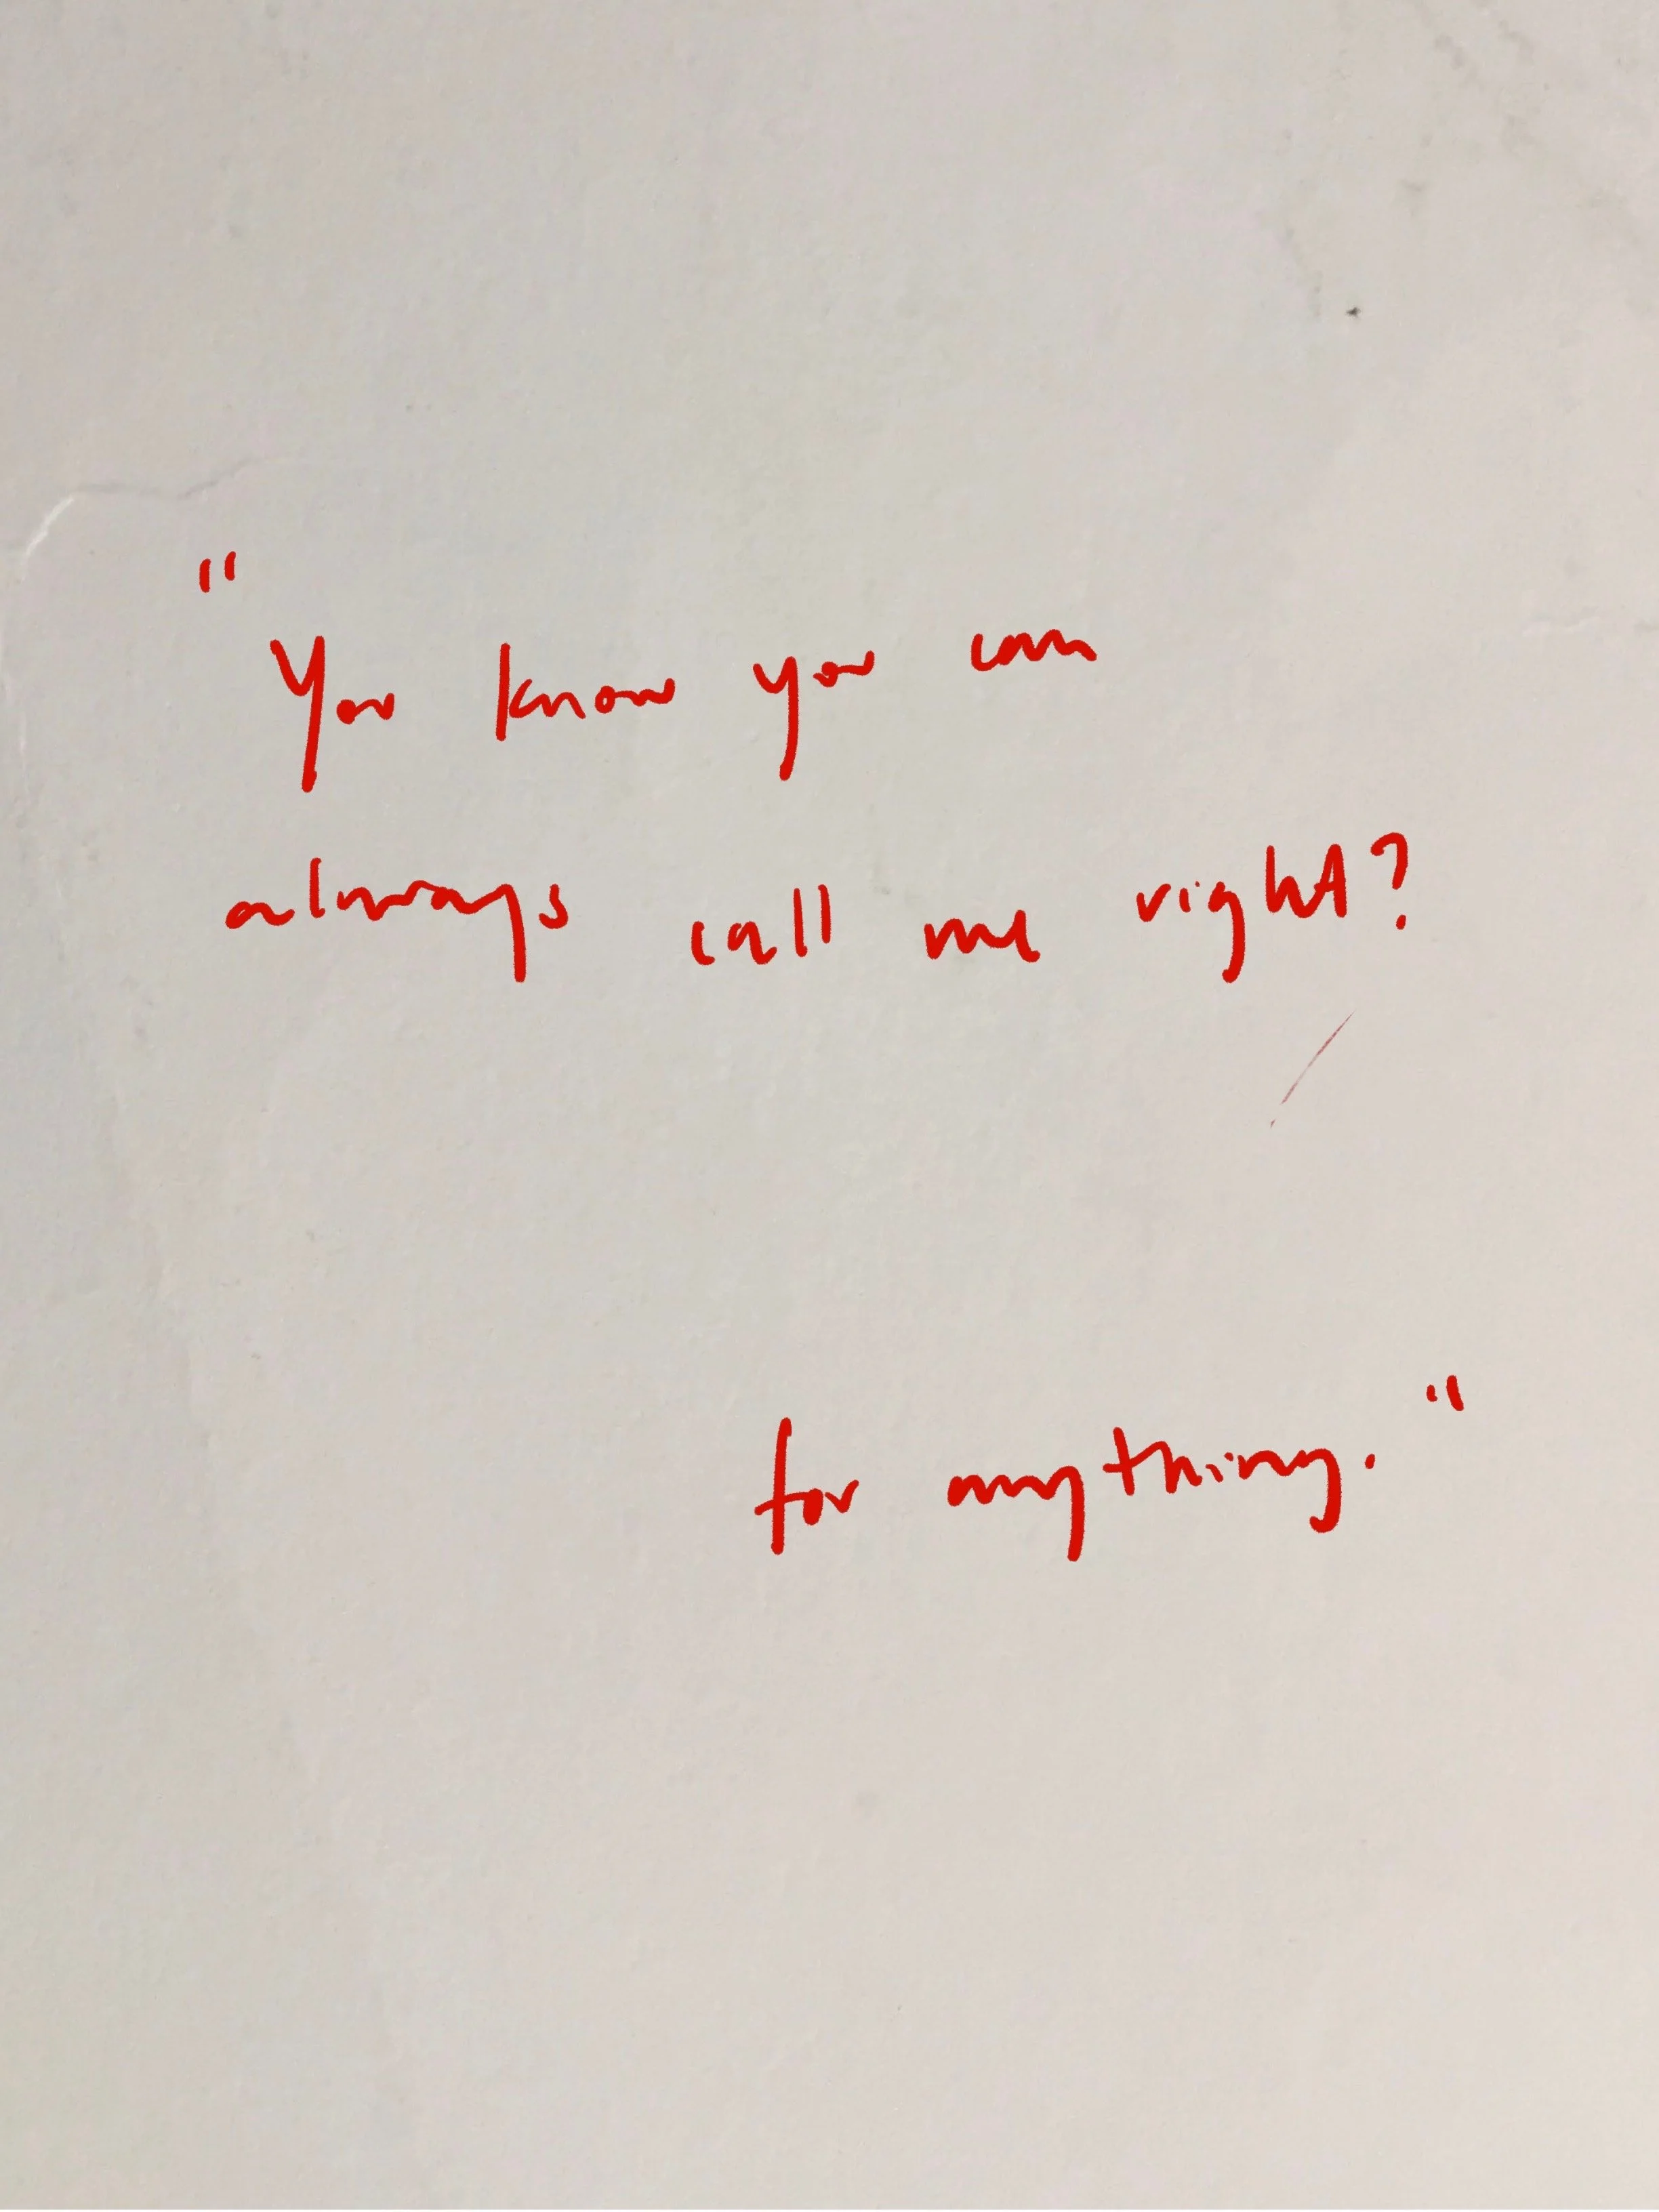 "
You know you can
always call me right?
for anything."